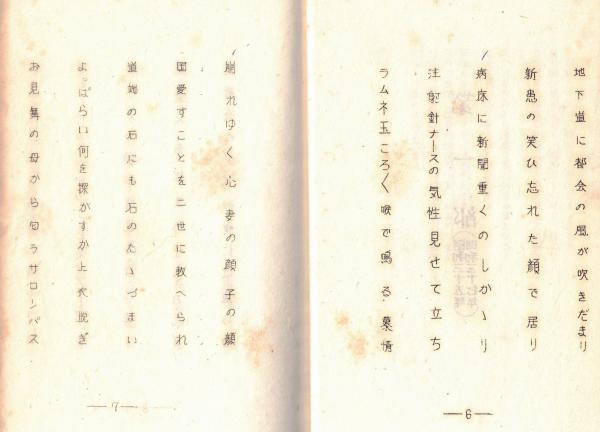 地下道に都会の風が吹きだまり
新患の笑ひ忘れた顔で居り
病床に新聞重くのしかゝり
注射針ナースの気性見せて立ち
ラムネ玉ころ〱喉で鳴る慕情
— 6 —
崩れゆく心妻の顔子の顔
国愛すことを二世に教へられ
道端の石にも石のたゝづまい
よっぱらい何を探がすか上衣脱ぎ
お見舞の母から匂うサロンパス
— 7 —